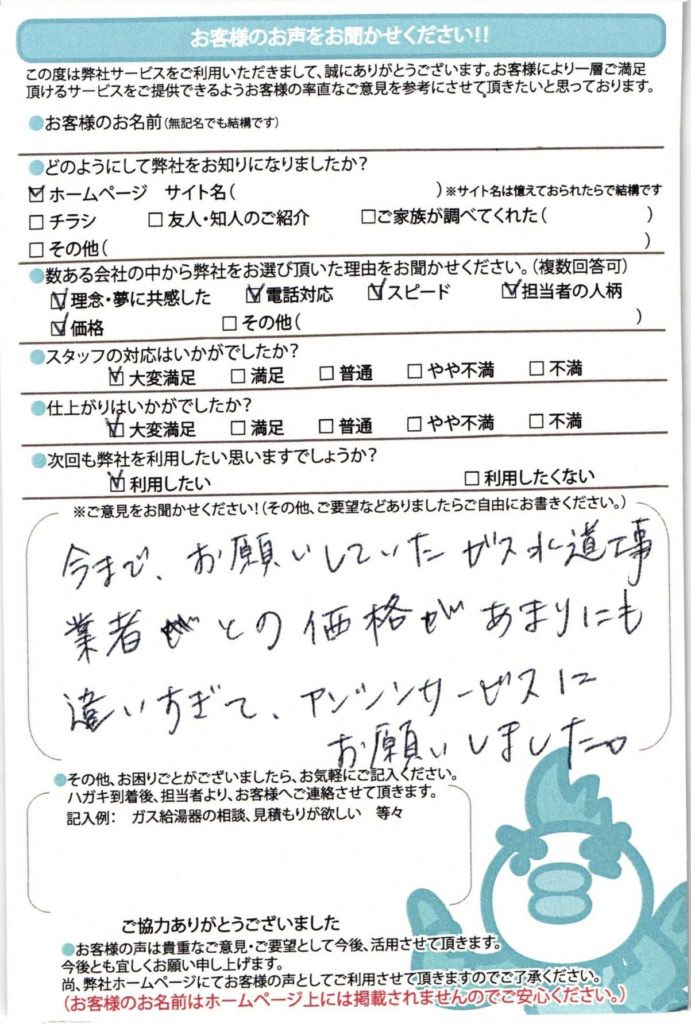 お客様のお声をお聞かせください!!
この度は弊社サービスをご利用いただきまして、誠にありがとうございます。お客様により一層ご満足
頂けるサービスをご提供できるようお客様の率直なご意見を参考にさせて頂きたいと思っております。
●お客様のお名前(無記名でも結構です)
●どのようにして弊社をお知りになりましたか?
☑ホームページ サイト名( )※サイト名は憶えておられたらで結構です
□チラシ □友人・知人のご紹介 □ご家族が調べてくれた( )
□その他( )
●数ある会社の中から弊社をお選び頂いた理由をお聞かせください。(複数回答可)
☑理念・夢に共感した ☑電話対応 ☑スピード ☑担当者の人柄
☑価格 □その他( )
●スタッフの対応はいかがでしたか?
☑大変満足 □満足 □普通 □やや不満 □不満
●仕上がりはいかがでしたか?
☑大変満足 □満足 □普通 □やや不満 □不満
●次回も弊社を利用したい思いますでしょうか?
☑利用したい □利用したくない
※ご意見をお聞かせください!(その他、ご要望などありましたらご自由にお書きください。)
今まで、お願いしていたガス水道工事
業者との価格があまりにも
違いすぎて、アンシンサービスに
お願いしました。
●その他、お困りごとがございましたら、お気軽にご記入ください。
ハガキ到着後、担当者より、お客様へご連絡させて頂きます。
記入例: ガス給湯器の相談、見積もりが欲しい 等々
ご協力ありがとうございました
●お客様の声は貴重なご意見・ご要望として今後、活用させて頂きます。
今後とも宜しくお願い申し上げます。
尚、弊社ホームページにてお客様の声としてご利用させて頂きますのでご了承ください。
(お客様のお名前はホームページ上には掲載されませんのでご安心ください。)